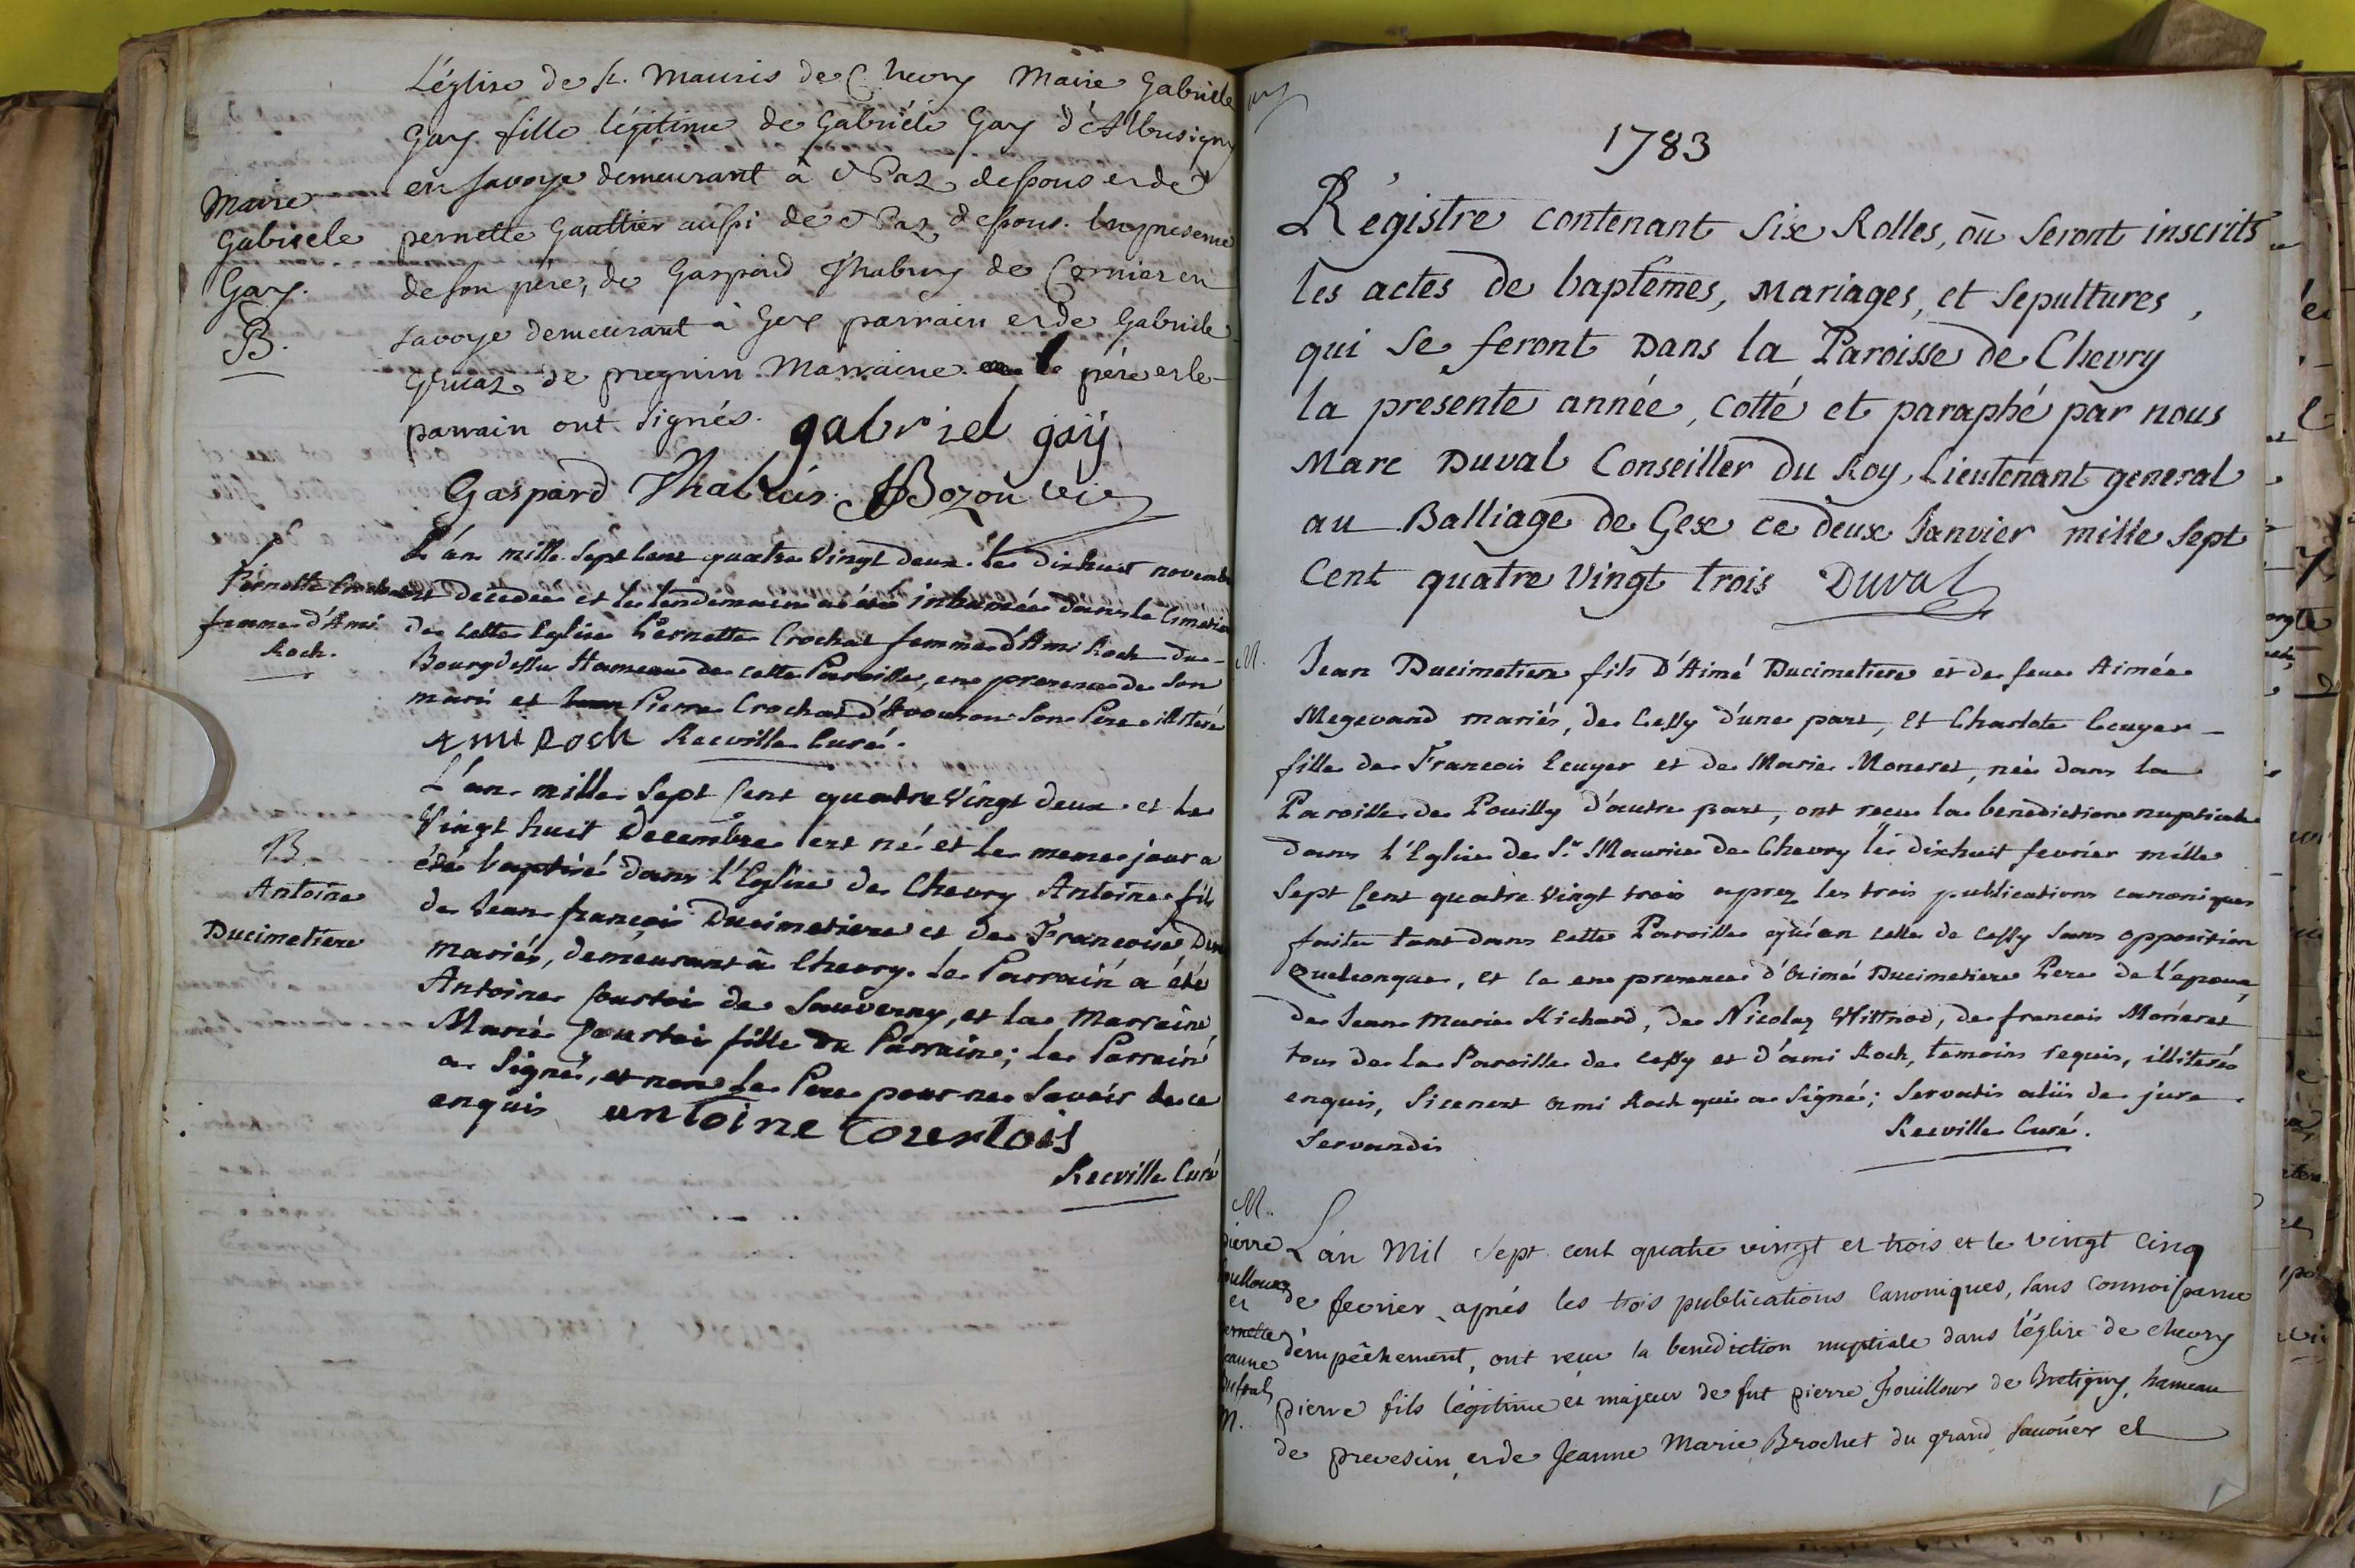 L'église de St. Mauris de Chevry Marie Gabriele
Gay fille légitime de Gabriële Gay d'Albusigny
en savoye demeurant à
pernette Gaultier aussi de
de son pére, de Gaspard Thabuis de Cornier en
savoye demeurant à Gex parrain et de Gabriele
de pregnin Marraine le pére et le
parrain ont signés. gabriel gaÿ
Gaspard Thabuis. Bozon vic
Marie
Gabriele
Gay.
B.
L'an mille sept cent quatre vingt deux. le dixhuit novembre
est decedée et le lendemain a été inhumée dans le Cimetier
de cette Eglise Pernette Crochat femme d'Ami Roch du
Bourgdessu Hameau de cette Paroisse, en presence de son
mari et Pierre Crochat d'Avouson son Pere illiteré
AMI ROCH Recville Curé.
Pernette Crochat
femme d'Ami
Roch.
L'an mille sept cent quatre vingt deux et le
vingt huit Decembre est né et le meme jour a
été baptisé dans l'Eglise de Chevry Antoine fils
de Jean françois Ducimetiere et de Francoise
mariés, demeurant à Chevry. le Parrain a été
Antoine Courtoi de Sauverny, et la Marraine
Marie Courtoi fille du Parrain; le Parrain
a signé, et non le Pere pour ne savoir de ce
enquis antoine Courtois
Recville Curé
B.
Antoine
Ducimetiere
1783
Régistre contenant six Rolles, où seront inscrits
les actes de baptêmes, Mariages, et sepultures,
qui se feront Dans la Paroisse de Chevry
la presente année, cotté et paraphé par nous
Marc Duval Conseiller du Roy, Lieutenant general
au Balliage de Gex ce deux Janvier mille sept
cent quatre vingt trois Duval
M. Jean Ducimetiere fils D'Aimé Ducimetiere et de feue Aimée
Megevand mariés, de Cessy d'une part, et Charlote Ecuyer
fille de Francois Ecuyer et de Marie Moneret, née dans la
Paroisse de Pouilly d'autre part, ont recu la benediction nuptiale
dans l'Eglise de St. Maurice de Chevry le dixhuit fevrier mille
sept cent quatre vingt trois aprez les trois publications canoniques
faites tant dans cette Paroisse qu'en celle de Cessy sans opposition
Quelconque, et ce en presence d'Aimé Ducimetiere Pere de l'epoux,
de Jean Marie Richard, de Nicolaz Wittnod, de francois Moneret
tous de la Paroisse de Cessy et d'ami Roch, temoins requis, illiterés
enquis, sicenest Ami Roch qui a signé; servatis aliis de jure
servandis Recville Curé.
M.
pierre
et
pernette
jeanne
M.
L'an Mil sept cent quatre vingt et trois et le vingt cinq
de fevrier, aprés les trois publications Canoniques, sans connoissance
d'empêchement, ont recu la benediction nuptiale dans l'église de chevry
pierre fils légitime et majeur de fut pierre fouilloux de Bretigny, hameau
de prevesin, et de Jeanne Marie Brochet du grand et